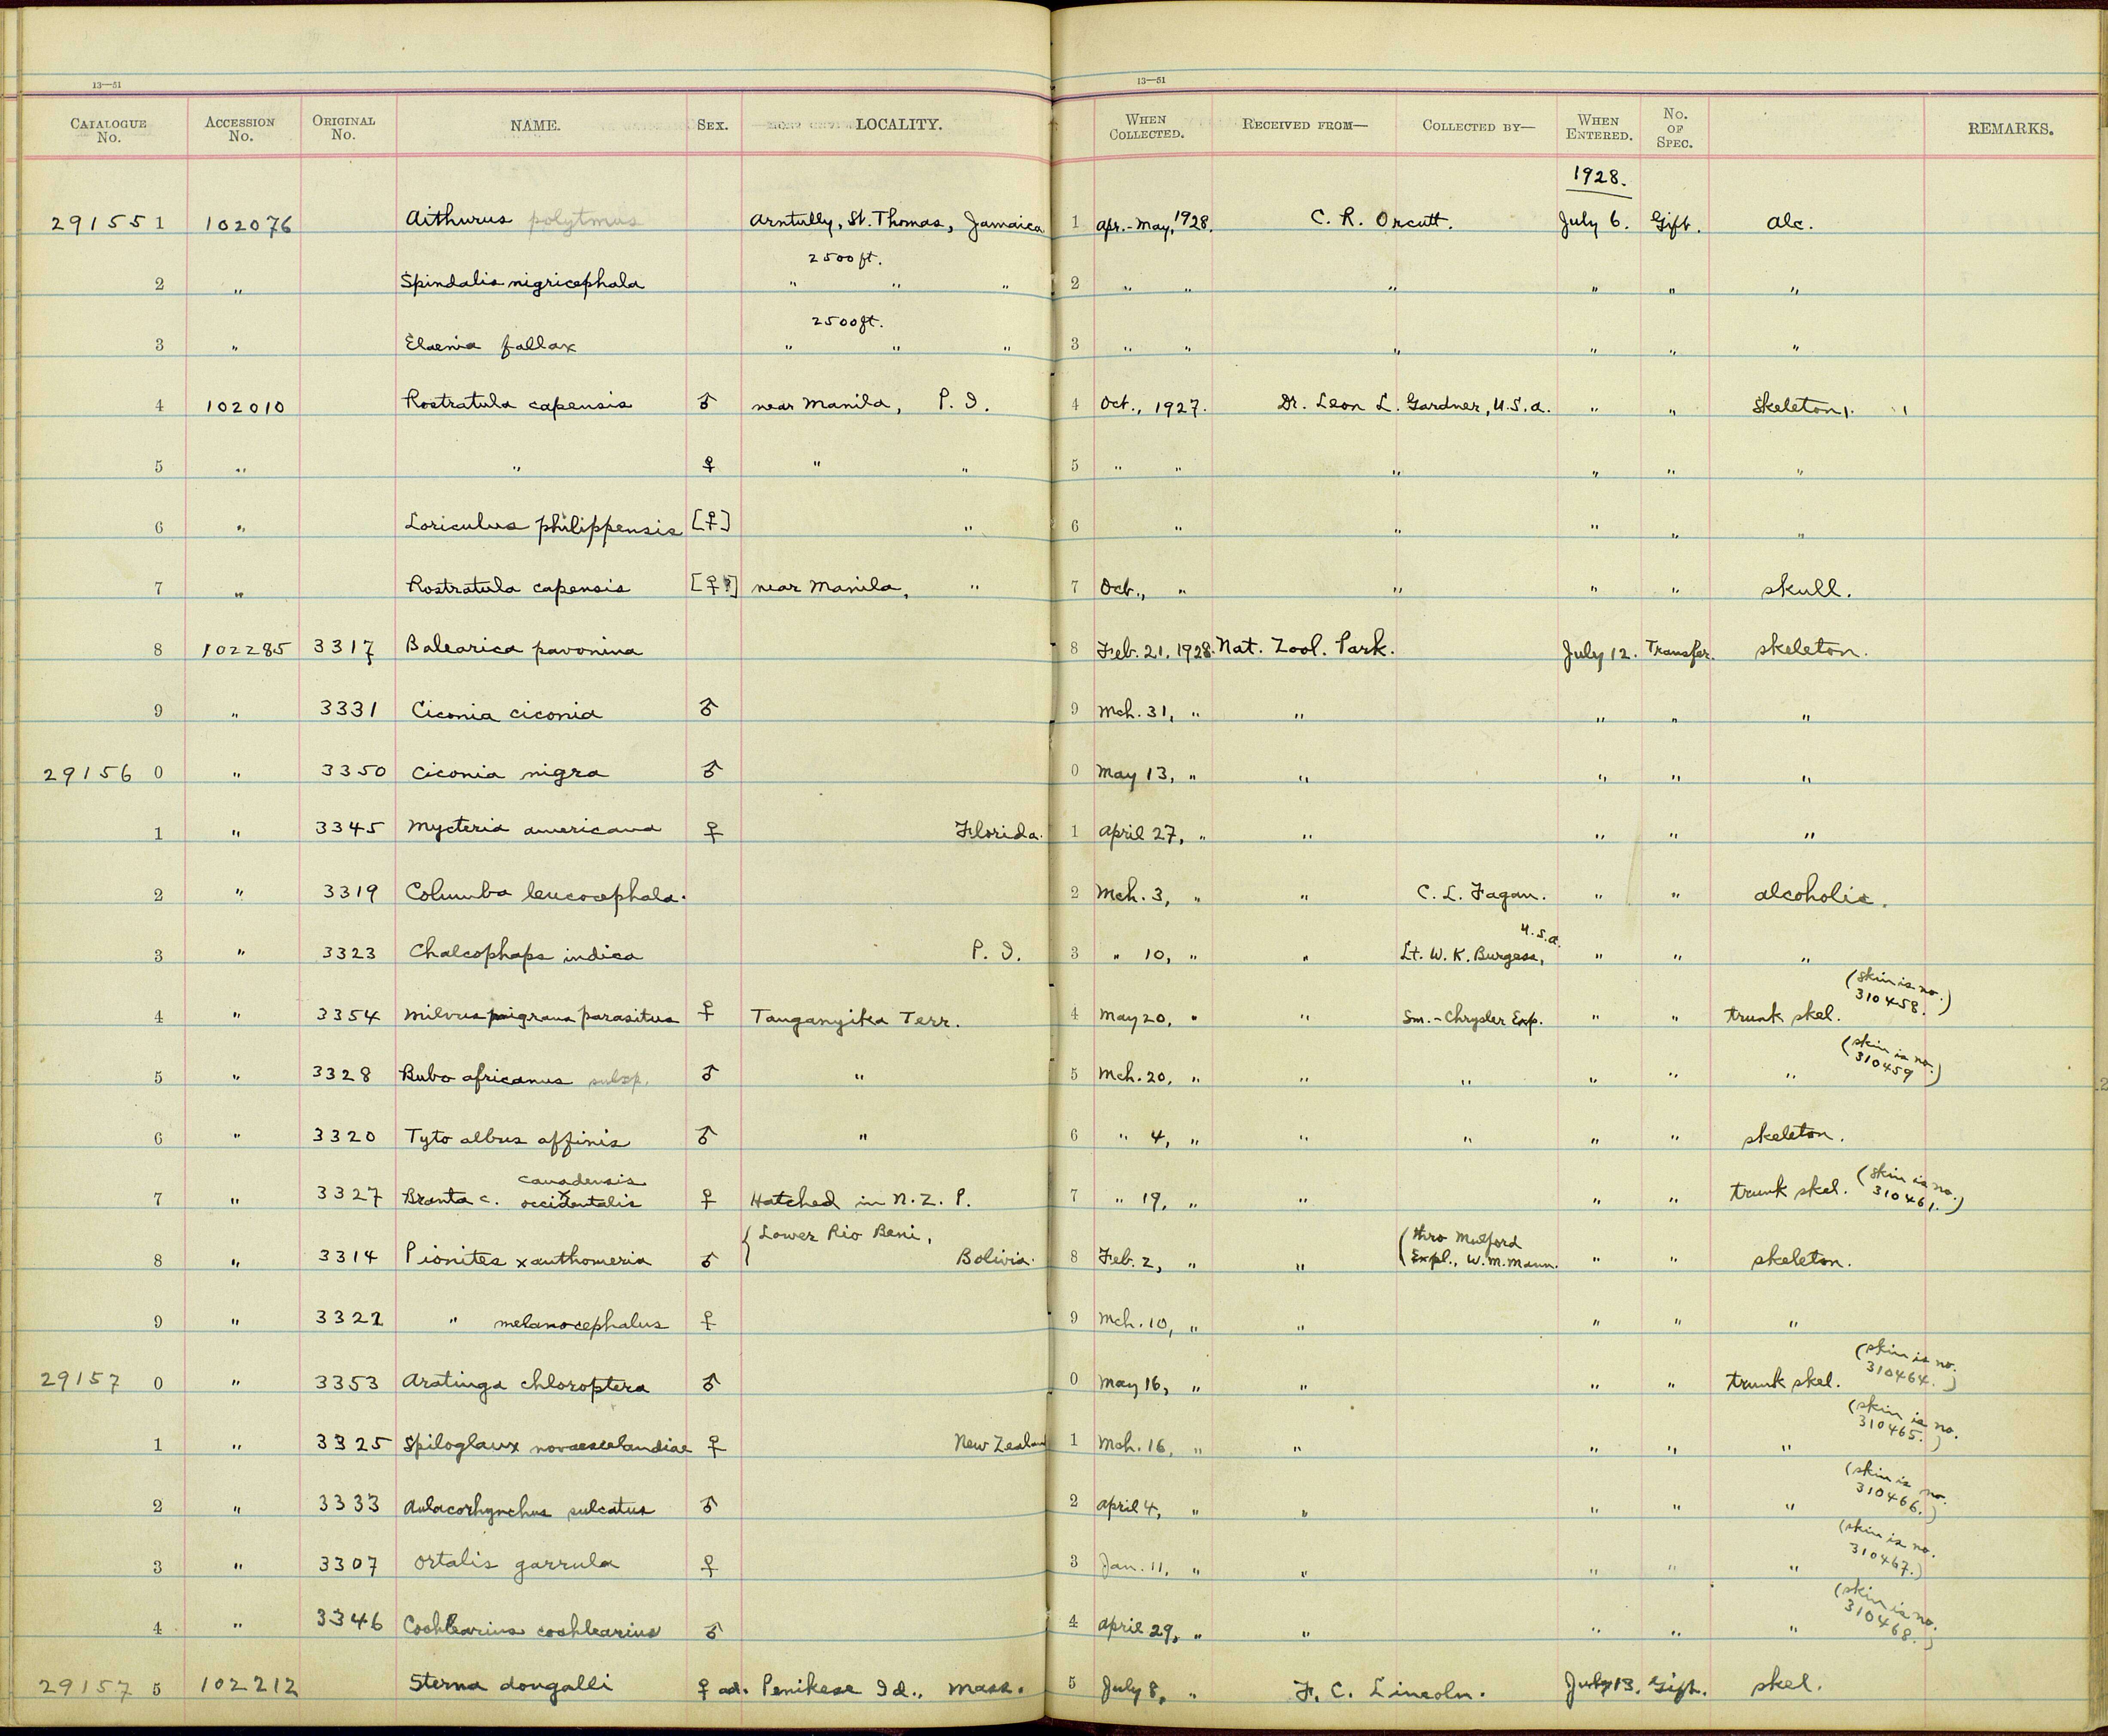 13—51 13—51
CATALOGUE No. ACCESSION No. ORIGINAL No. NAME. SEX. LOCALITY. WHEN COLLECTED. RECEIVED FROM— COLLECTED BY— WHEN ENTERED. No. OF SPEC. REMARKS.
1928.
29155 1 102076 Aithurus polytmus Arntully, St. Thomas, Jamaica 1 Apr.-May, 1928. C. R. Orcutt. July 6. Gift. Alc.
2500 ft.
2 " Spindalis nigricephala " " " 2 " " " " " "
2500 ft.
3 " Elaenia fallax " " " 3 " " " " " "
4 102010 Rostratula capensis ♂ near Manila, P. I. 4 Oct., 1927. Dr. Leon L. Gardner, U.S.A. " " Skeleton.
5 " " ♀ " " 5 " " " " " "
6 " Loriculus philippensis [♀] " 6 " " " " "
7 " Rostratula capensis [♀?] near Manila, " 7 Oct., " " " " skull.
8 102285 3317 Balearica pavonina 8 Feb. 21, 1928. Nat. Zool. Park. July 12. Transfer. skeleton.
9 " 3331 Ciconia ciconia ♂ 9 Mch. 31, " " " " "
29156 0 " 3350 Ciconia nigra ♂ 0 May 13, " " " " "
1 " 3345 Mycteria americana ♀ Florida. 1 April 27, " " " " "
2 " 3319 Columba leucocephala. 2 Mch. 3, " " C. L. Fagan. " " alcoholic.
U.S.A.
3 " 3323 Chalcophaps indica P. I. 3 " 10, " " Lt. W. K. Burgess, " " "
4 " 3354 Milvus migrans parasitus ♀ Tanganyika Terr. 4 May 20, " " Sm.-Chrysler Exp. " " trunk skel. (skin is no. 310458.)
5 " 3328 Bubo africanus subsp. ♂ " 5 Mch. 20, " " " " " " (skin is no. 310459)
6 " 3320 Tyto albus affinis ♂ " 6 " 4, " " " " " skeleton.
canadensis x
7 " 3327 Branta c. occidentalis ♀ Hatched in N. Z. P. 7 " 19, " " " " trunk skel. (skin is no. 310461.)
{Lower Rio Beni, (thro Mulford
8 " 3314 Pionites xanthomeria ♂ Bolivia. 8 Feb. 2, " " Expl., W. M. Mann. " " skeleton.
9 " 3322 " melanocephalus ♀ 9 Mch. 10, " " " " "
29157 0 " 3353 Aratinga chloroptera ♂ 0 May 16, " " " " trunk skel. (skin is no. 310464.)
1 " 3325 Spiloglaux novaeseelandiae ♀ New Zealand 1 Mch. 16, " " " " " (skin is no. 310465.)
2 " 3333 Aulacorhynchus sulcatus ♂ 2 April 4, " " " " " (skin is no. 310466.)
3 " 3307 Ortalis garrula ♀ 3 Jan. 11, " " " " " (skin is no. 310467.)
4 " 3346 Cochlearius cochlearius ♂ 4 April 29, " " " " " (skin is no. 310468.)
29157 5 102212 Sterna dougalli ♀ ad. Penikese Id., Mass. 5 July 8, " F. C. Lincoln. July 13. Gift. skel.